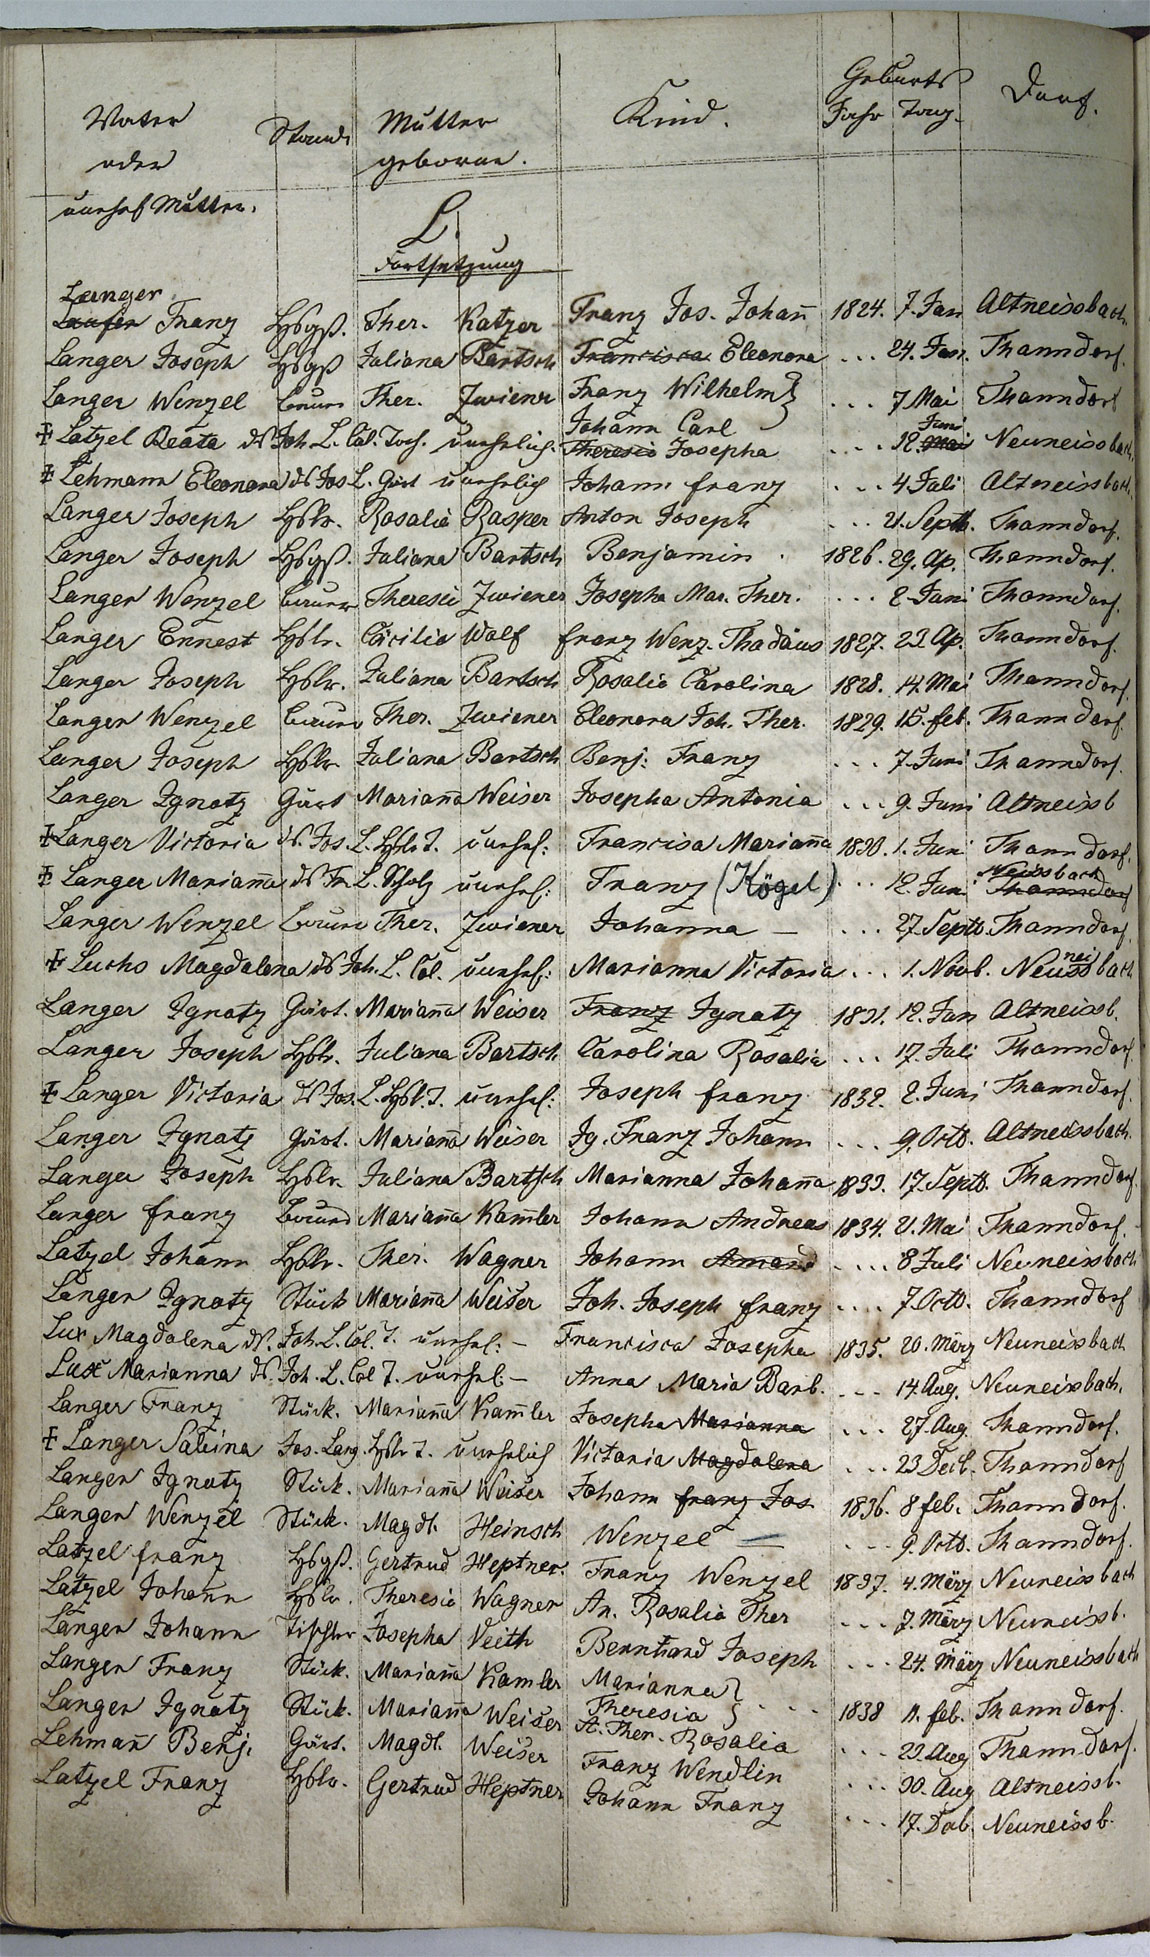 Geburts
Vater Stand Mutter Kind. Jahr Tag. Dorf.
oder geborne.
unehel Mutter.
L.
Fortsetzung
Langer
Laufer Franz Hbgß. Ther. Katzer Franz Jos. Johañ 1824. 7. Jan Altneissbach.
Langer Joseph Hbgß Juliana Bartsch Francisca Eleonora ... 24. Jan. Thanndorf.
Langer Wenzel Bauer Ther. Zwiener Franz Wilhelm } ... 7 Mai Thanndorf
Johann Carl
Juni
‡ Latzel Beata ds Joh. L. Col. Toch. unehelich. Theresia Josepha .... 12. Mai Neuneissbach.
‡ Lehmann Eleonora ds Jos. L. Gärt unehelich Johann Franz ... 4 Juli Altneissbach.
Langer Joseph Hslr. Rosalia Rasper Anton Joseph ... 21. Septb. Thanndorf.
Langer Joseph Hbgß. Juliana Bartsch Benjamin . 1826. 29. Ap. Thanndorf.
Langer Wenzel Bauer Theresia Zwiener Josepha Mar. Ther. ... 2 Juni Thanndorf.
Langer Ernest Hslr. Cäcilia Wolf Franz Wenz. Thadäus 1827. 23. Ap. Thanndorf.
Langer Joseph Hslr. Juliana Bartsch Rosalia Carolina 1828. 14. Mai Thanndorf.
Langer Wenzel Bauer Ther. Zwiener Eleonora Joh. Ther. 1829. 15. Feb. Thanndorf.
Langer Joseph Hslr. Juliana Bartsch Benj. Franz ... 7. Juni Thanndorf.
Langer Ignatz Gärt Mariañа Weiser Josepha Antonia ... 9. Juni Altneissb
‡ Langer Victoria ds. Jos. L. Hslr T. unehel: Francisca Mariañа 1830. 1. Juni Thanndorf.
Neissbach
‡ Langer Mariañа ds Fr. L. Scholz unehel: Franz (Kögel) ... 12 Juni Thanndorf
Langer Wenzel Bauer Ther. Zwiener Johanna — ... 27. Septb. Thanndorf.
nei
‡ Luchs Magdalena ds Joh. L. Col. unehel: Marianna Victoria ... 1. Novb. Neussbach
Langer Ignatz Gärt. Mariañа Weiser Franz Ignatz 1831. 12. Jan Altneissb.
Langer Joseph Hslr. Juliana Bartsch Carolina Rosalia ... 17. Juli Thanndorf.
‡ Langer Victoria ds Jos. L. Hsl. T. unehel: Joseph Franz 1832. 2. Juni Thanndorf.
Langer Ignatz Gärt. Mariañа Weiser Ig. Franz Johann ... 9. Octb. Altneissbach.
Langer Joseph Hslr. Juliana Bartsch Marianna Johañа 1833. 17. Septb. Thanndorf.
Langer Franz Bauer Mariañа Kam̃ler Johann Andreas 1834. 21. Mai Thanndorf.
Latzel Johann Hslr. Ther. Wagner Johann Amand .... 8 Juli Neuneissbach
Langer Ignatz Stück Mariañа Weiser Joh. Joseph Franz .... 7. Octb. Thanndorf
Lux Magdalena ds. Joh. L. Col. T. unehel: — Francisca Josepha 1835. 20. März Neuneissbach
Lux Marianna ds. Joh. L. Col T. unehel — Anna Maria Barb. ... 14. Aug. Neuneissbach.
Langer Franz Stück. Mariañа Kam̃ler Josepha Marianna ... 27. Aug Thanndorf.
‡ Langer Sabina Jos. Lang. Hslr T. unehelich Victoria Magdalena ... 23 Decb. Thanndorf
Langer Ignatz Stück. Mariañа Weiser Johann Franz Jos 1836. 8 Feb. Thanndorf.
Langer Wenzel Stück. Magdl. Heinsch Wenzel — ... 9. Octb. Thanndorf.
Latzel Franz Hbgß. Gertrud Heptner. Franz Wenzel 1837. 4. März Neuneissbach
Latzel Johann Hslr. Theresia Wagner An. Rosalia Ther ... 7. März Neuneissb.
Langer Johann Tischler Josepha Veith Bernhard Joseph ... 24. März Neuneissbach
Langer Franz Stück. Mariañа Kamler Marianna } ... 1838 11. Feb. Thanndorf.
Theresia
Langer Ignatz Stück. Mariañа Weiser A. Ther. Rosalia ... 23. Aug Thanndorf.
Lehmañ Benj. Gärt. Magdl. Weiser Franz Wendlin ... 30. Aug Altneissb.
Latzel Franz Hslr. Gertrud Heptner Johann Franz ... 17. Dcb. Neuneissb.